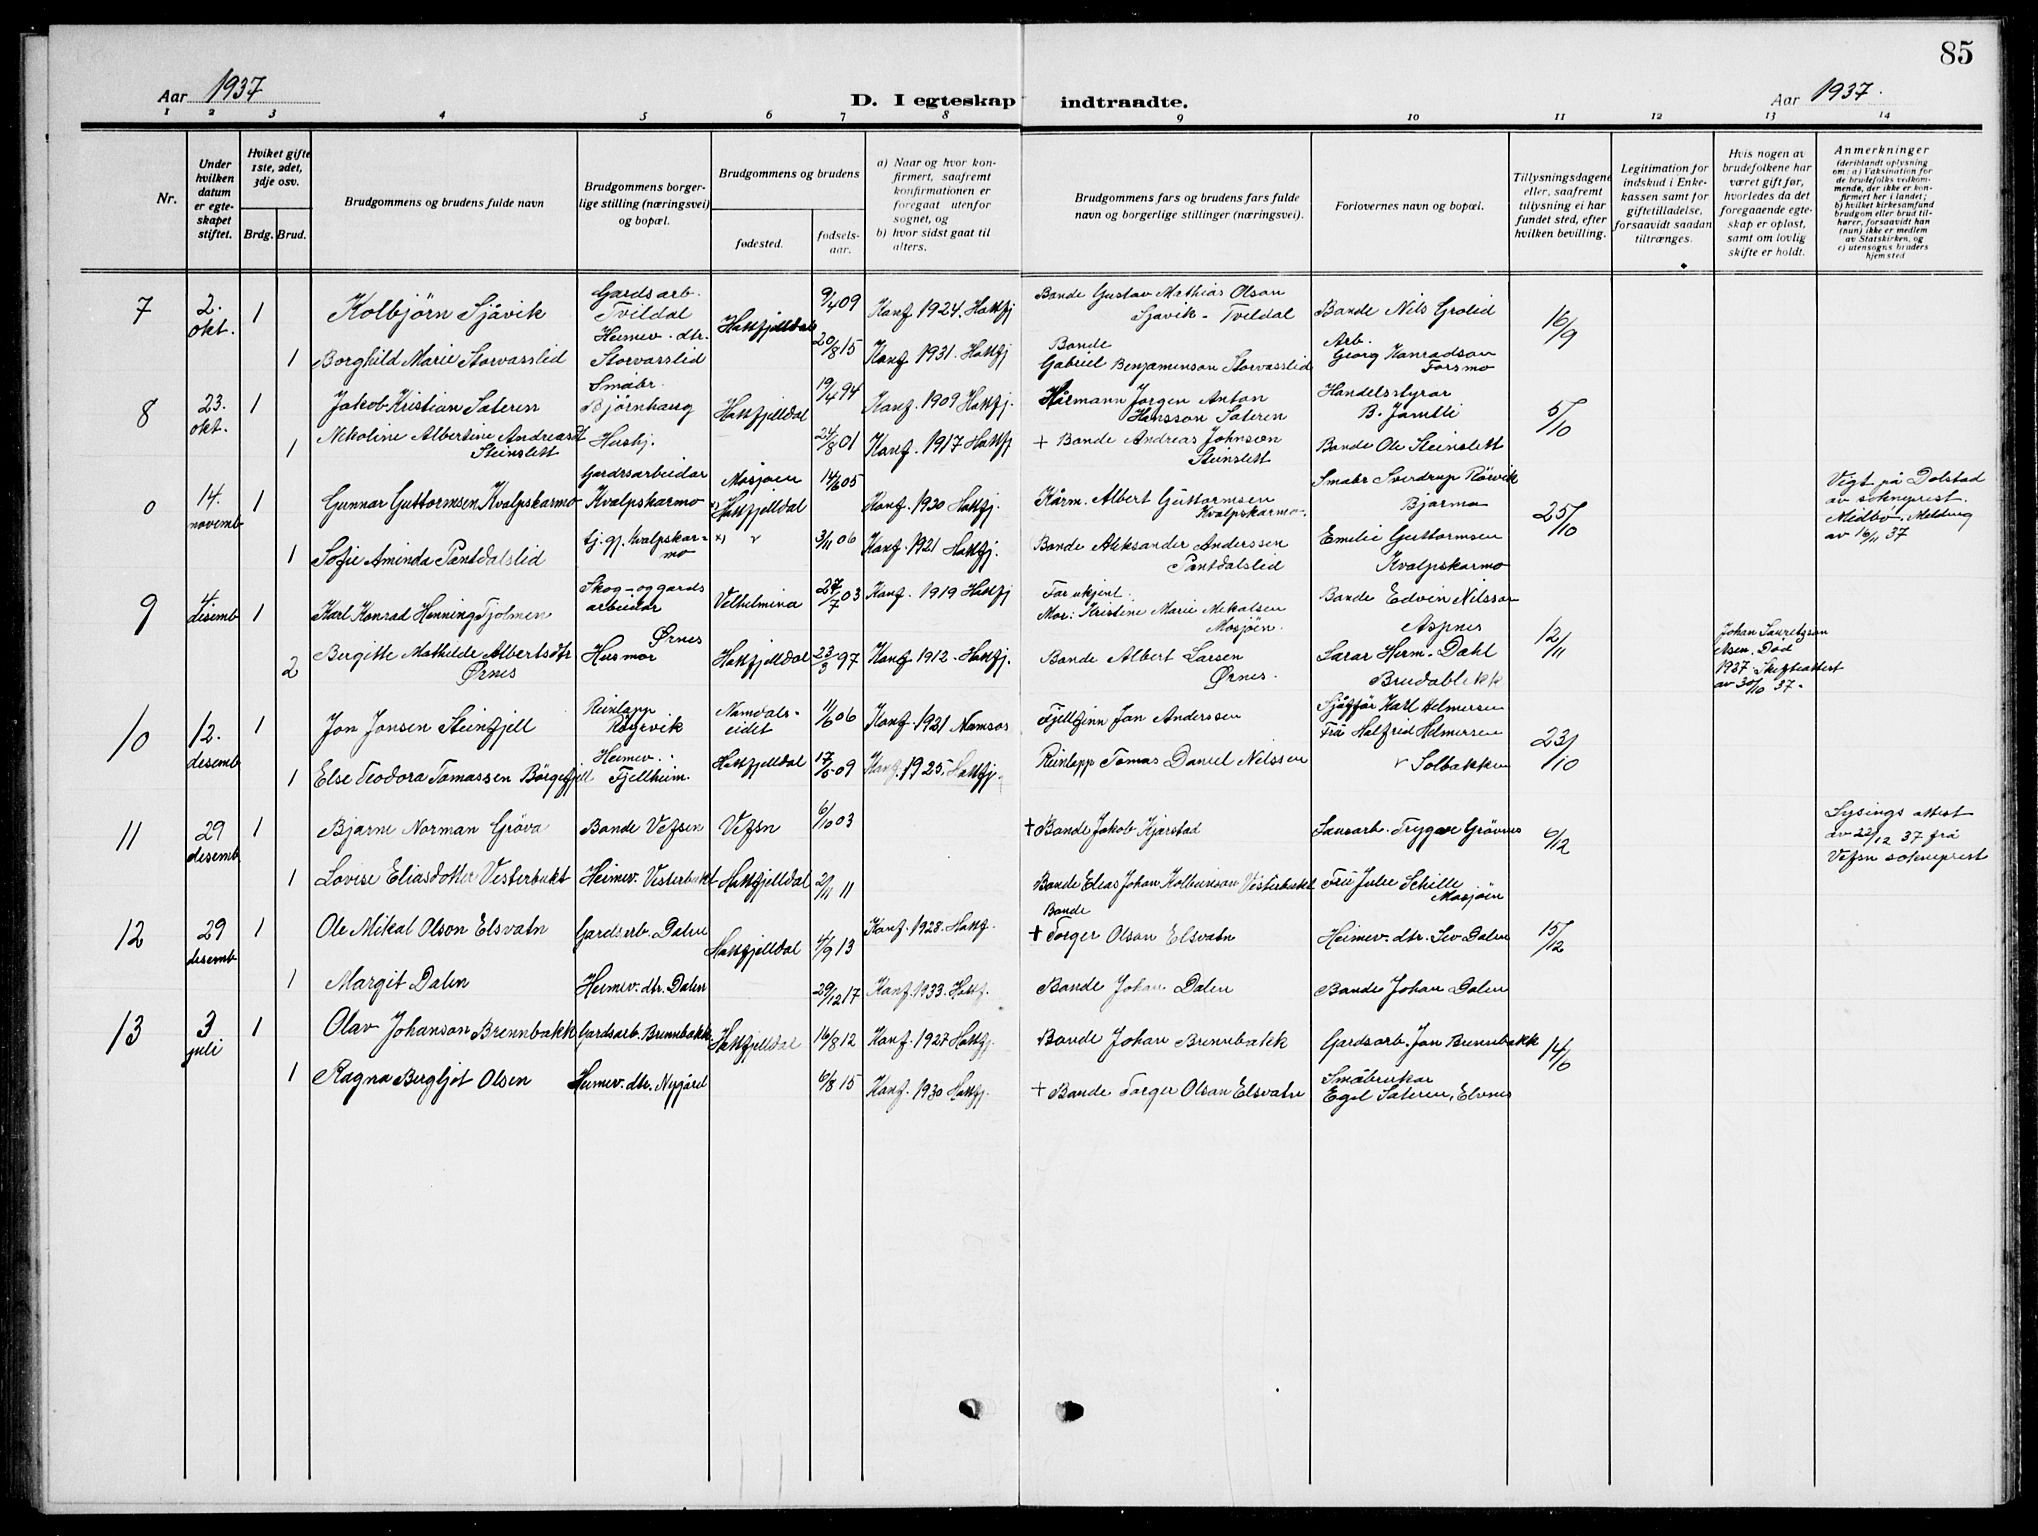 85
Aar 1937
D. I egteskap indtraadte.
Aar 1937.
1 2 3 4 5 6 7 8 9 10 11 12 13 14
Nr.
Under hvilken datum er egteskapet stiftet.
Hvilket gifte 1ste, 2det, 3dje osv.
Brdg. Brud.
Brudgommens og brudens fulde navn
Brudgommens borgerlige stilling (næringsvei) og bopæl.
Brudgommens og brudens
fødested.
fødselsaar.
a) Naar og hvor konfirmert, saafremt konfirmationen er foregaat utenfor sognet, og
b) hvor sidst gaat til alters.
Brudgommens fars og brudens fars fulde navn og borgerlige stillinger (næringsvei).
Forlovernes navn og bopæl.
Tillysningsdagene eller, saafremt tillysning ei har fundet sted, efter hvilken bevilling.
Legitimation for indskud i Enkekassen samt for giftetilladelse, forsaavidt saadan tiltrænges.
Hvis nogen av brudefolkene har været gift før, hvorledes da det foregaaende egteskap er opløst, samt om lovlig skifte er holdt.
Anmerkninger
(deriblandt oplysning om: a) Vaksination for de brudefolks vedkommende, der ikke er konfirmert her i landet; b) hvilket kirkesamfund brudgom eller brud tilhører, forsaavidt han (hun) ikke er medlem av Statskirken, og c) utensogns bruders hjemsted
7 2. okt. 1 Kolbjörn Sjåvik Gardsarb. Tvildal Hattfjelldal 9/4 09 Konf 1924. Hattfj Bonde Gustav Mathias Olson Sjåvik - Tvildal Bonde Nils Grolid 16/9
1 Borghild Marie Storvasslid Heimev. dtr. Storvasslid 20/8 15 Konf. 1931. Hattfj Bonde Gabriel Benjaminson Storvasslid Arb. Georg Konradson Forsmo
8 23. okt. 1 Jakob Kristian Sæteren Småbr. Bjørnhaug Hattfjelldal 19/4 94 Konf. 1909 Hattfj. Kårmann Jørgen Anton Hansson Sæteren Handelsstyrar B. Jamtli 5/10
1 Nikoline Albertine Andreasdt Steinslett Hushj. 24/8 01 Konf. 1917 Hattfj + Bonde Andreas Johnsen Steinslett Bonde Ole Steinslett
0 14. novemb 1 Gunnar Guttormsen Kvalpskarmo Gardsarbeidar Kvalpskarmo Mosjøen Hattfjelldal 14/6 05 Konf. 1920 Hattfj. Kårm. Albert Guttormsen Kvalpskarmo. Småbr Sverdrup Rørvik Bjørmo 25/10 Vigt på Dolstad av sokneprest. Midbø. Melding av 16/11 37
1 Sofie Aminda Pantdalslid tj. gj. Kvalpskarmo 3/11 06 Konf. 1921 Hattfj. Bonde Aleksander Anderssen Pantdalslid Emilie Guttormsen Kvalpskarmo
9 4 disemb 1 Karl Konrad Henning Fjolmen Skog- og gards arbeidar Ørnes Velhelmina 27/7 03 Konf. 1919 Hattfj Far ukjent. Mor: Kristine Marie Mikalsen Mosjöen. Bonde Edvin Nilsson Aspnes 12/11
2 Bergitte Mathilde Albertsdtr Ørnes Husmor Hattfjelldal 23/3 97 Konf 1912. Hattfj. Bonde Albert Larsen Ørnes. Lærar Herm. Dahl Brudablikk Johan Lauritzson Død 1937. Skifteattest av 30/10 37.
10 12. desemb 1 Jon Jonsen Steinfjell Reinlapp Røyrvik Namdalseidet 11/6 06 Konf. 1921 Namsos Fjellfinn Jon Anderssen Karl Helmersen Frå Halfrid Helmersen Solbakken 23/10
1 Else Teodora Tomassen Börgefjell Heimev. Fjellheim. Hattfjelldal 17/5 09 Konf. 1925. Hattfj. Reinlapp Tomas Daniel Nilssen
11 29 disemb 1 Bjarne Norman Grøva Bonde Vefsen Vefsn 6/10 03 + Bonde Jakob Kjærstad Sausarb. Trygve Grøvnes 6/12 Lysings attest av 22/12 37 frå Vefsn sokneprest
1 Lovise Eliasdotter Vesterbukt Heimev. Vesterbukt Hattfjelldal 2/11 11 Bonde Elias Johan Kolbeinson Vesterbukt Fru Julie Schille Mosjøen
12 29 disemb 1 Ole Mikal Olson Elsvatn Gardsarb. Dalen Hattfjelldal 4/9 13 Konf. 1928. Hattfj. Bonde + Torger Olson Elsvatn Heimev. dtr. Liv Dalen 15/12
1 Margit Dalen Heimev. dtr. Dalen 29/12 17 Konf. 1933. Hattfj. Bonde Johan Dalen Bonde Johan Dalen
13 3 juli 1 Olav Johanson Brennbakk Gardsarb. Brennbakk Hattfjelldal 16/8 12 Konf. 1927 Hattfj. Bonde Johan Brennbakk Gardsarb. Jon Brennbakk 14/6
1 Ragna Bergljot Olsen Heimev. dtr. Nygård 6/8 15 Konf. 1930 Hattfj. + Bonde Torger Olson Elsvatn Småbrukar Egil Sæteren, Elvnes